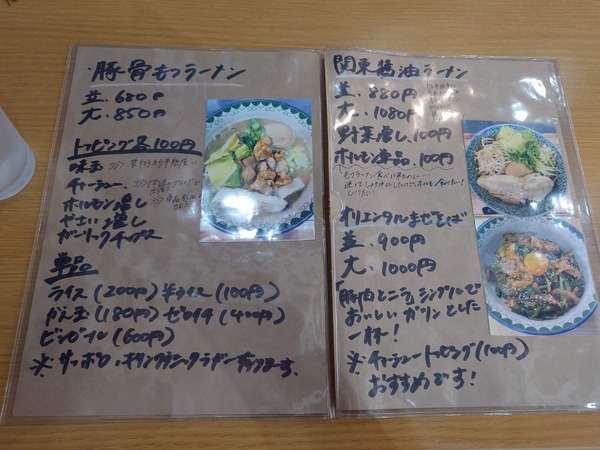 豚骨もつラーメン
並.680円
大.850円
トッピング各100円
味玉
チャーシュー
ホルモン増し
やさい増し
ガーリックチップス
単品
ライス(200円)半ライス(100円)
替え玉(180円)
(400円)
ビンビール(600円)
関東醤油ラーメン
並.880円
大.1080円
野菜増し.100円
ホルモン単品.100円
オリエンタルまぜそば
並.900円
大.1000円
「豚肉とニラ」シンプルで
おいしいガツンとした
一杯!
※チャーシュートッピング(100円)
おすすめです!